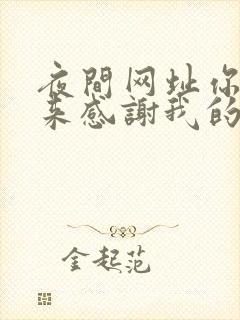 夜間网址你
来感謝我的
金起范